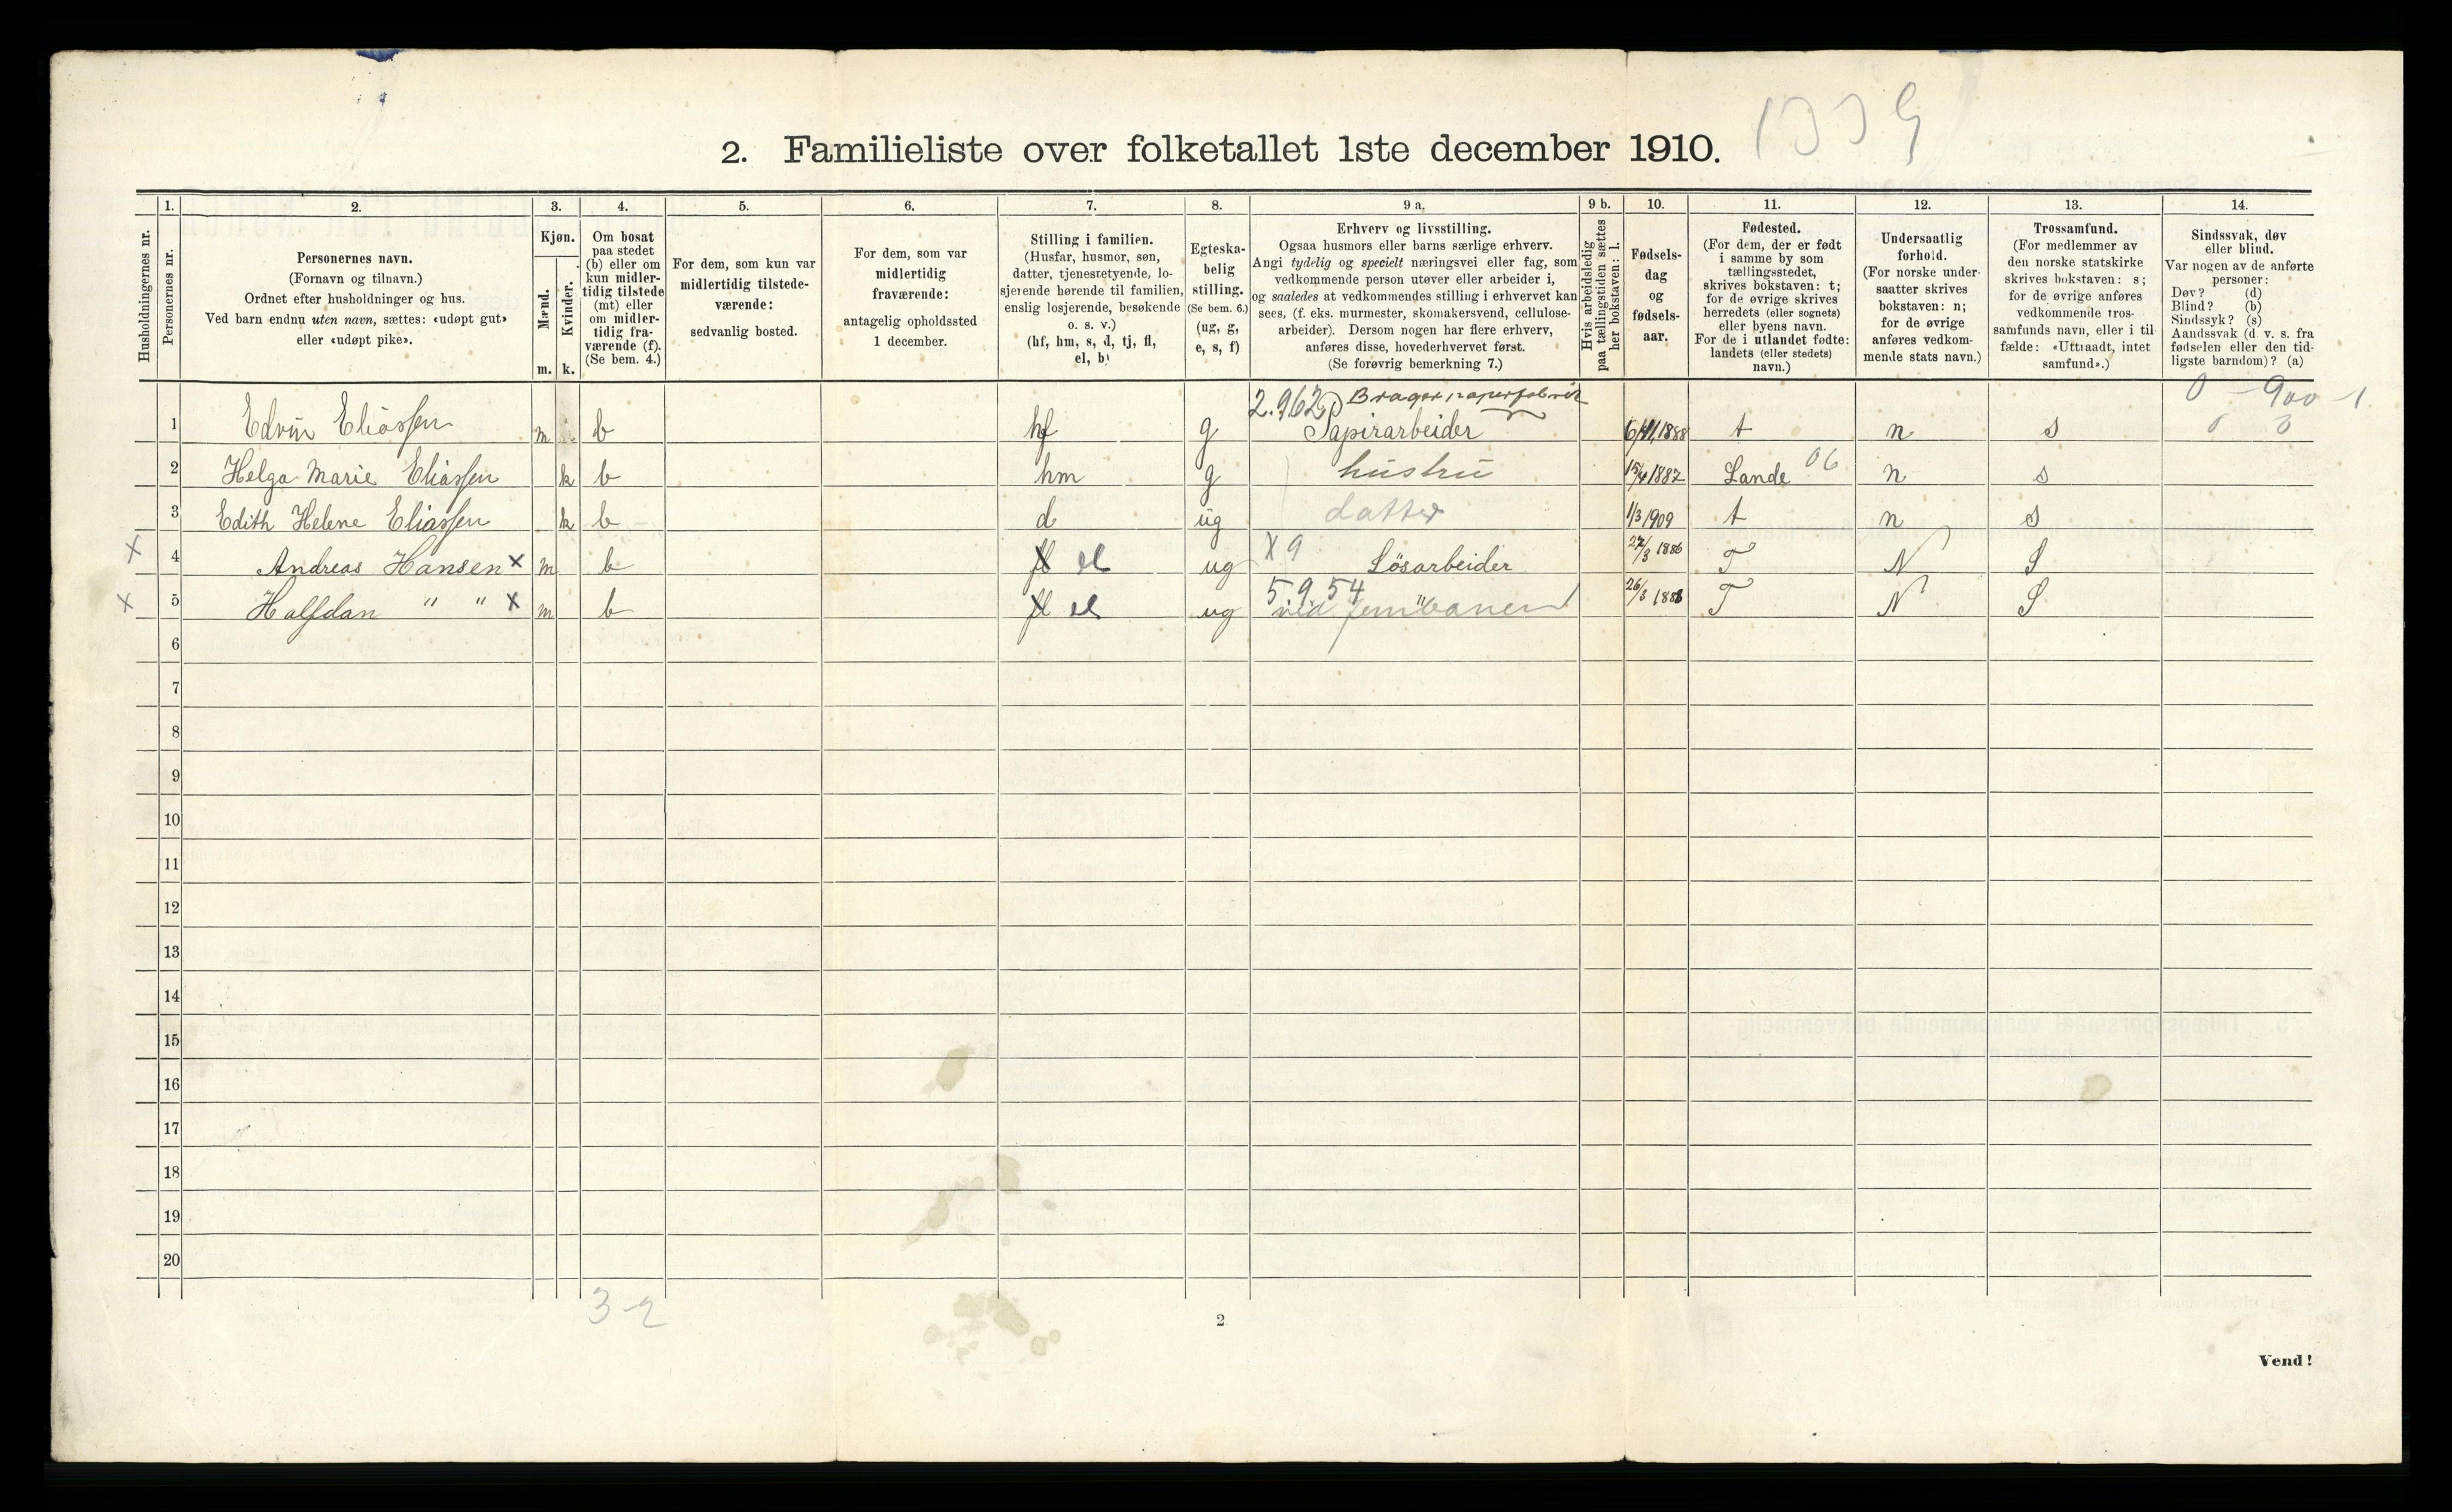 1339
2. Familieliste over folketallet 1ste december 1910.
Husholdningernes nr.
1.
Personernes nr.
2.
Personernes navn.
(Fornavn og tilnavn.)
Ordnet efter husholdninger og hus.
Ved barn endnu uten navn, sættes: «udøpt gut»
eller «udøpt pike».
3.
Kjøn.
Mænd.
Kvinder.
m. k.
4.
Om bosat
paa stedet
(b) eller om
kun midler-
tidig tilstede
(mt) eller
om midler-
tidig fra-
værende (f).
(Se bem. 4.)
5.
For dem, som kun var
midlertidig tilstede-
værende:
sedvanlig bosted.
6.
For dem, som var
midlertidig
fraværende:
antagelig opholdssted
1 december.
7.
Stilling i familien.
(Husfar, husmor, søn,
datter, tjenestetyende, lo-
sjerende hørende til familien,
enslig losjerende, besøkende
o. s. v.)
(hf, hm, s, d, tj, fl,
el, b)
8.
Egteska-
belig
stilling.
(Se bem. 6.)
(ug, g,
e, s, f)
9 a.
Erhverv og livsstilling.
Ogsaa husmors eller barns særlige erhverv.
Angi tydelig og specielt næringsvei eller fag, som
vedkommende person utøver eller arbeider i,
og saaledes at vedkommendes stilling i erhvervet kan
sees, (f. eks. murmester, skomakersvend, cellulose-
arbeider). Dersom nogen har flere erhverv,
anføres disse, hovederhvervet først.
(Se forøvrig bemerkning 7.)
9 b.
Hvis arbeidsledig
paa tællingstiden sættes
her bokstaven: l.
10.
Fødsels-
dag
og
fødsels-
aar.
11.
Fødested.
(For dem, der er født
i samme by som
tællingsstedet,
skrives bokstaven: t;
for de øvrige skrives
herredets (eller sognets)
eller byens navn.
For de i utlandet fødte:
landets (eller stedets)
navn.)
12.
Undersaatlig
forhold.
(For norske under-
saatter skrives
bokstaven: n;
for de øvrige
anføres vedkom-
mende stats navn.)
13.
Trossamfund.
(For medlemmer av
den norske statskirke
skrives bokstaven: s;
for de øvrige anføres
vedkommende tros-
samfunds navn, eller i til-
fælde: «Uttraadt, intet
samfund».)
14.
Sindssvak, døv
eller blind.
Var nogen av de anførte
personer:
Døv? (d)
Blind? (b)
Sindssyk? (s)
Aandssvak (d. v. s. fra
fødselen eller den tid-
ligste barndom)? (a)
2.962 Brager papirfabrik 0 - 900 - 1
1 Edvin Eliassen m b hf g Papirarbeider 6/11 1888 t n s 0 3
2 Helga Marie Eliassen k b hm g hustru 15/4 1887 Lande 06 n s
3 Edith Helene Eliassen k b d ug datter 1/3 1909 t n s
X 4 Andreas Hansen X m b fl el ug X 9 Løsarbeider 27/3 1886 T N S
X 5 Halfdan " " X m b fl el ug 5954 " ved jernbanen 26/3 1888 T N S
6
7
8
9
10
11
12
13
14
15
16
17
18
19
20
3-2
2
Vend!